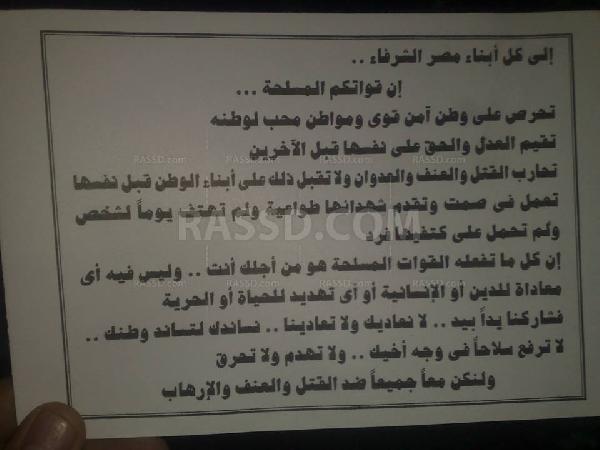 إلى كل أبناء مصر الشرفاء ..
إن قواتكم المسلحة ...
تحرص على وطن آمن قوى ومواطن محب لوطنه
تقيم العدل والحق على نفسها قبل الآخرين
تحارب القتل والعنف والعدوان ولا تقبل ذلك على أبناء الوطن قبل نفسها
تعمل فى صمت وتقدم شهدائها طواعية ولم تهتف يوماً لشخص
ولم تحمل على كتفيها فرد
إن كل ما تفعله القوات المسلحة هو من أجلك أنت .. وليس فيه أى
معاداة للدين أو الإنسانية أو أى تهديد للحياة أو الحرية
فشاركنا يداً بيد .. لا نعاديك ولا تعادينا .. نساندك لتساند وطنك ..
لا ترفع سلاحاً فى وجه أخيك .. ولا تهدم ولا تحرق
ولنكن معاً جميعاً ضد القتل والعنف والإرهاب
RASSD.com